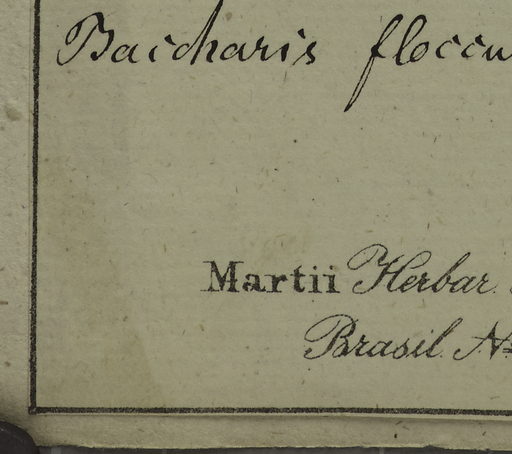 Baccharis floccu
Martii Herbar.
Brasil. Nº